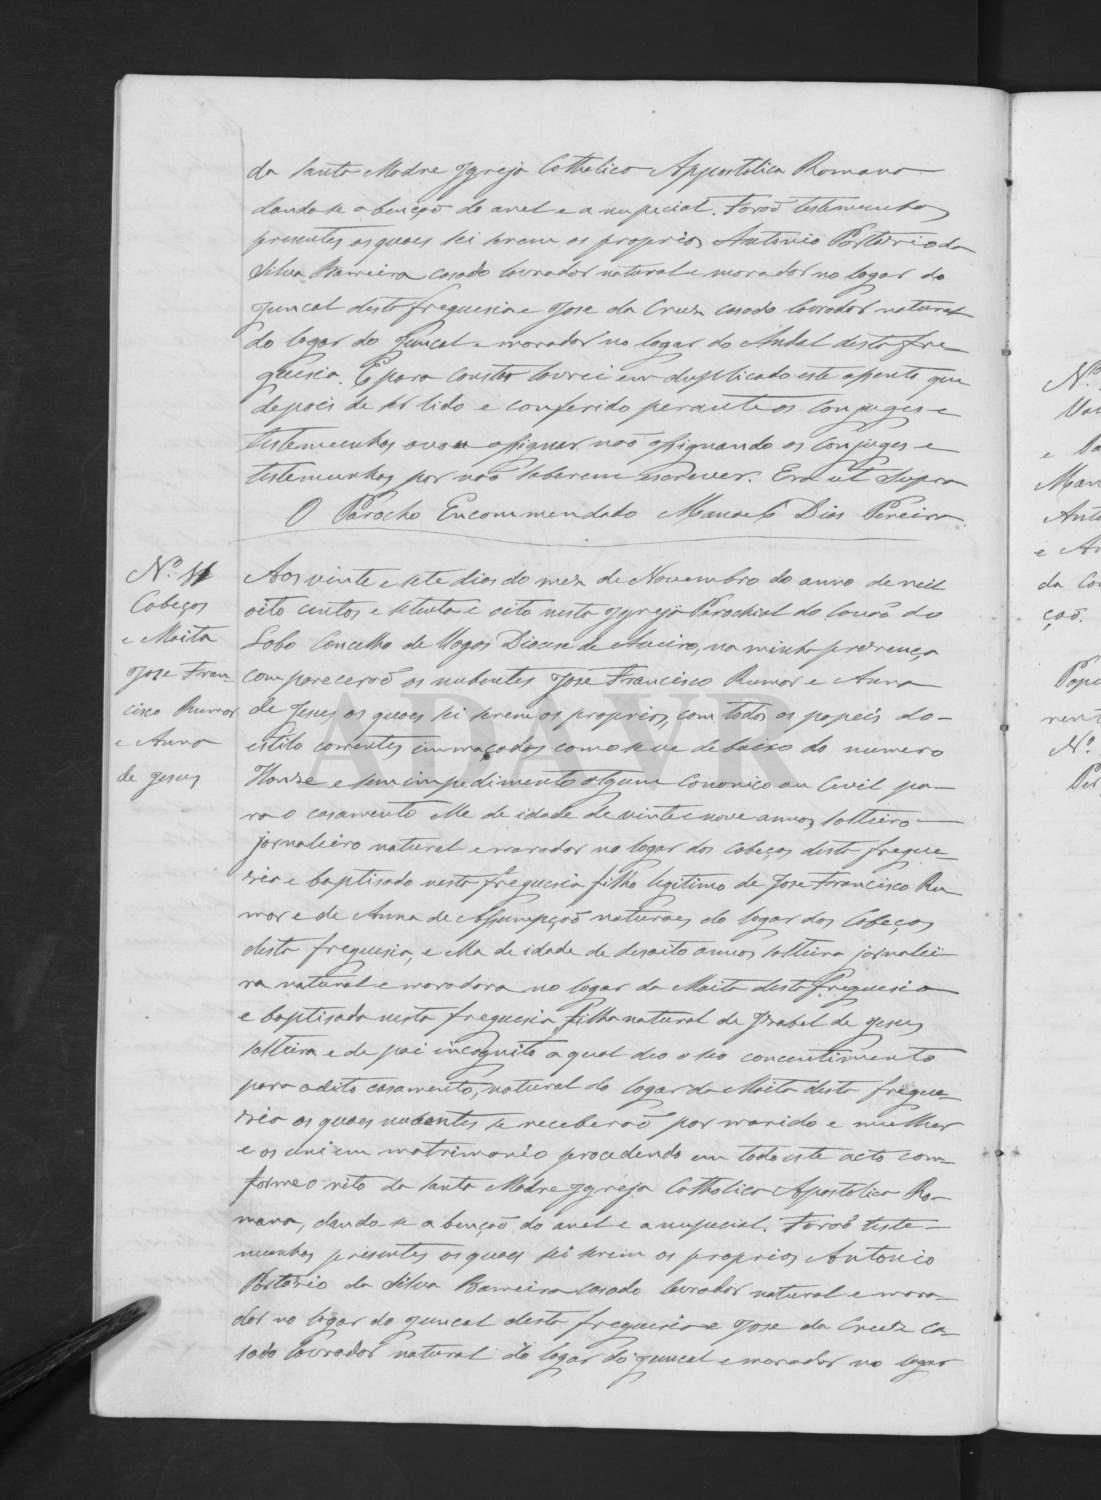 da Santa Madre Igreja Catholica Appostolica Romana
dando se a bençaõ do anel e a nupcial. Foraõ testemunhas
presentes os quaes sei serem os proprios Antonio Porterio da
Silva Barreira casado lavrador natural e morador no logar do
Juncal desta freguesia e Jose da Cruz casado lavrador natural
do logar do Juncal e morador no logar do Andal desta fre
guesia. E para constar lavrei em duplicado este assento que
depois de ser lido e conferido perante os conjuges e
testemunhas assignar naõ assignando os conjuges e
testemunhas por naõ saberem escrever. Era ut supra
O Parocho Encommendado Manoel Dias Pereira
Nº 11
Cabeços
e Moita
Jose Fran-
cisco Rumor
e Anna
de Jesus
Aos vinte e sete dias do mez de Novembro do anno de mil
oito centos e setenta e oito nesta Igreja Parochial do Covaõ do
Lobo Concelho de Vagos Diocese de Aveiro, na minha prezença
compareceraõ os nubentes Jose Francisco Rumor e Anna
de Jesus os quaes sei serem os proprios, com todos os papeis do
estilo correntes immaçados como se ve debaixo do numero
Honze e sem impedimento algum Canonico ou Civil pa-
ra o casamento elle de idade de vinte e nove annos solteiro
jornaleiro natural e morador no logar dos Cabeços desta fregue
zia e baptisado nesta freguesia filho legitimo de Jose Francisco Ru
mor e de Anna de Assumpçaõ naturaes do logar dos Cabeços
desta freguesia, e ella de idade de desoito annos solteira jornalei
ra natural e moradora no logar da Moita desta freguesia
e baptisada nesta freguesia filha natural de Izabel de Jesus
solteira e de pai incognito a qual deo o seo concentimento
para o dito casamento, natural do logar da Moita desta fregue
zia os quaes nubentes se receberaõ por marido e mulher
e os uni em matrimonio procedendo em todo este acto com-
forme o rito da Santa Madre Igreja Catholica Apostolica Ro-
mana, dando se a bençaõ do anel e a nupcial. Foraõ teste-
munhas presentes os quaes sei serem os proprios Antonio
Porterio da Silva Barreira casado lavrador natural e mora-
dor no logar do Juncal desta freguesia e Jose da Cruz ca
sado lavrador natural do logar do Juncal e morador no logar
Nº
e
Man
Anto
e An
da Co
çaõ.
Nº
ADAVR